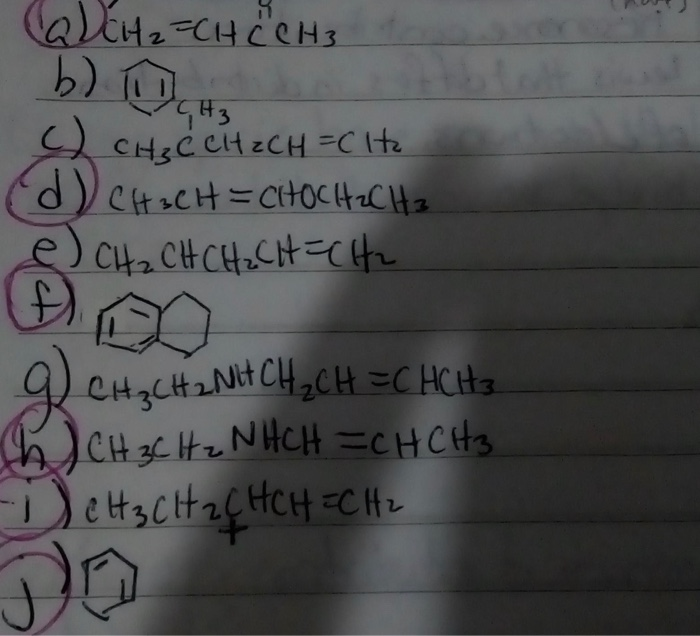 a) CH2=CHCCH3
b)
CH3
c) CH3CCH2CH=CH2
d) CH3CH=CHOCH2CH3
e) CH2CHCH2CH=CH2
f)
g) CH3CH2NHCH2CH=CHCH3
h) CH3CH2NHCH=CHCH3
i) CH3CH2CHCH=CH2
+
j)